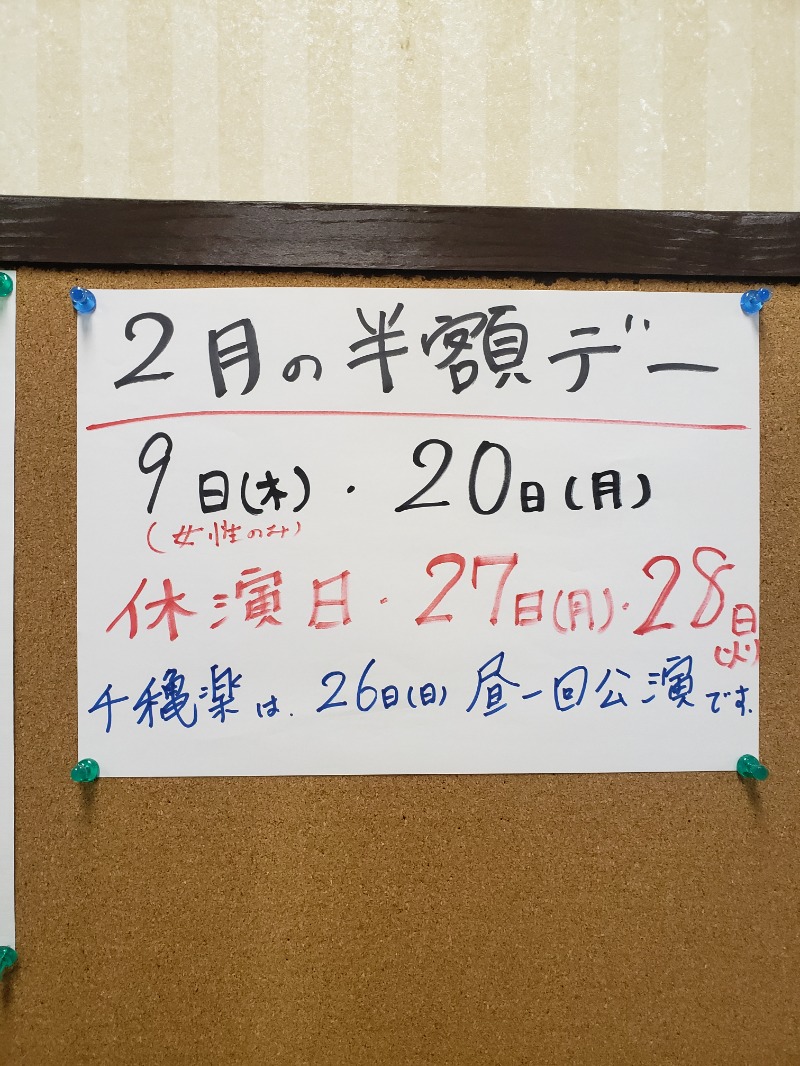 2月の半額デー
9日(木)・20日(月)
(女性のみ)
休演日・27日(月)・28日(火)
千穐楽は、26日(日)昼一回公演です。